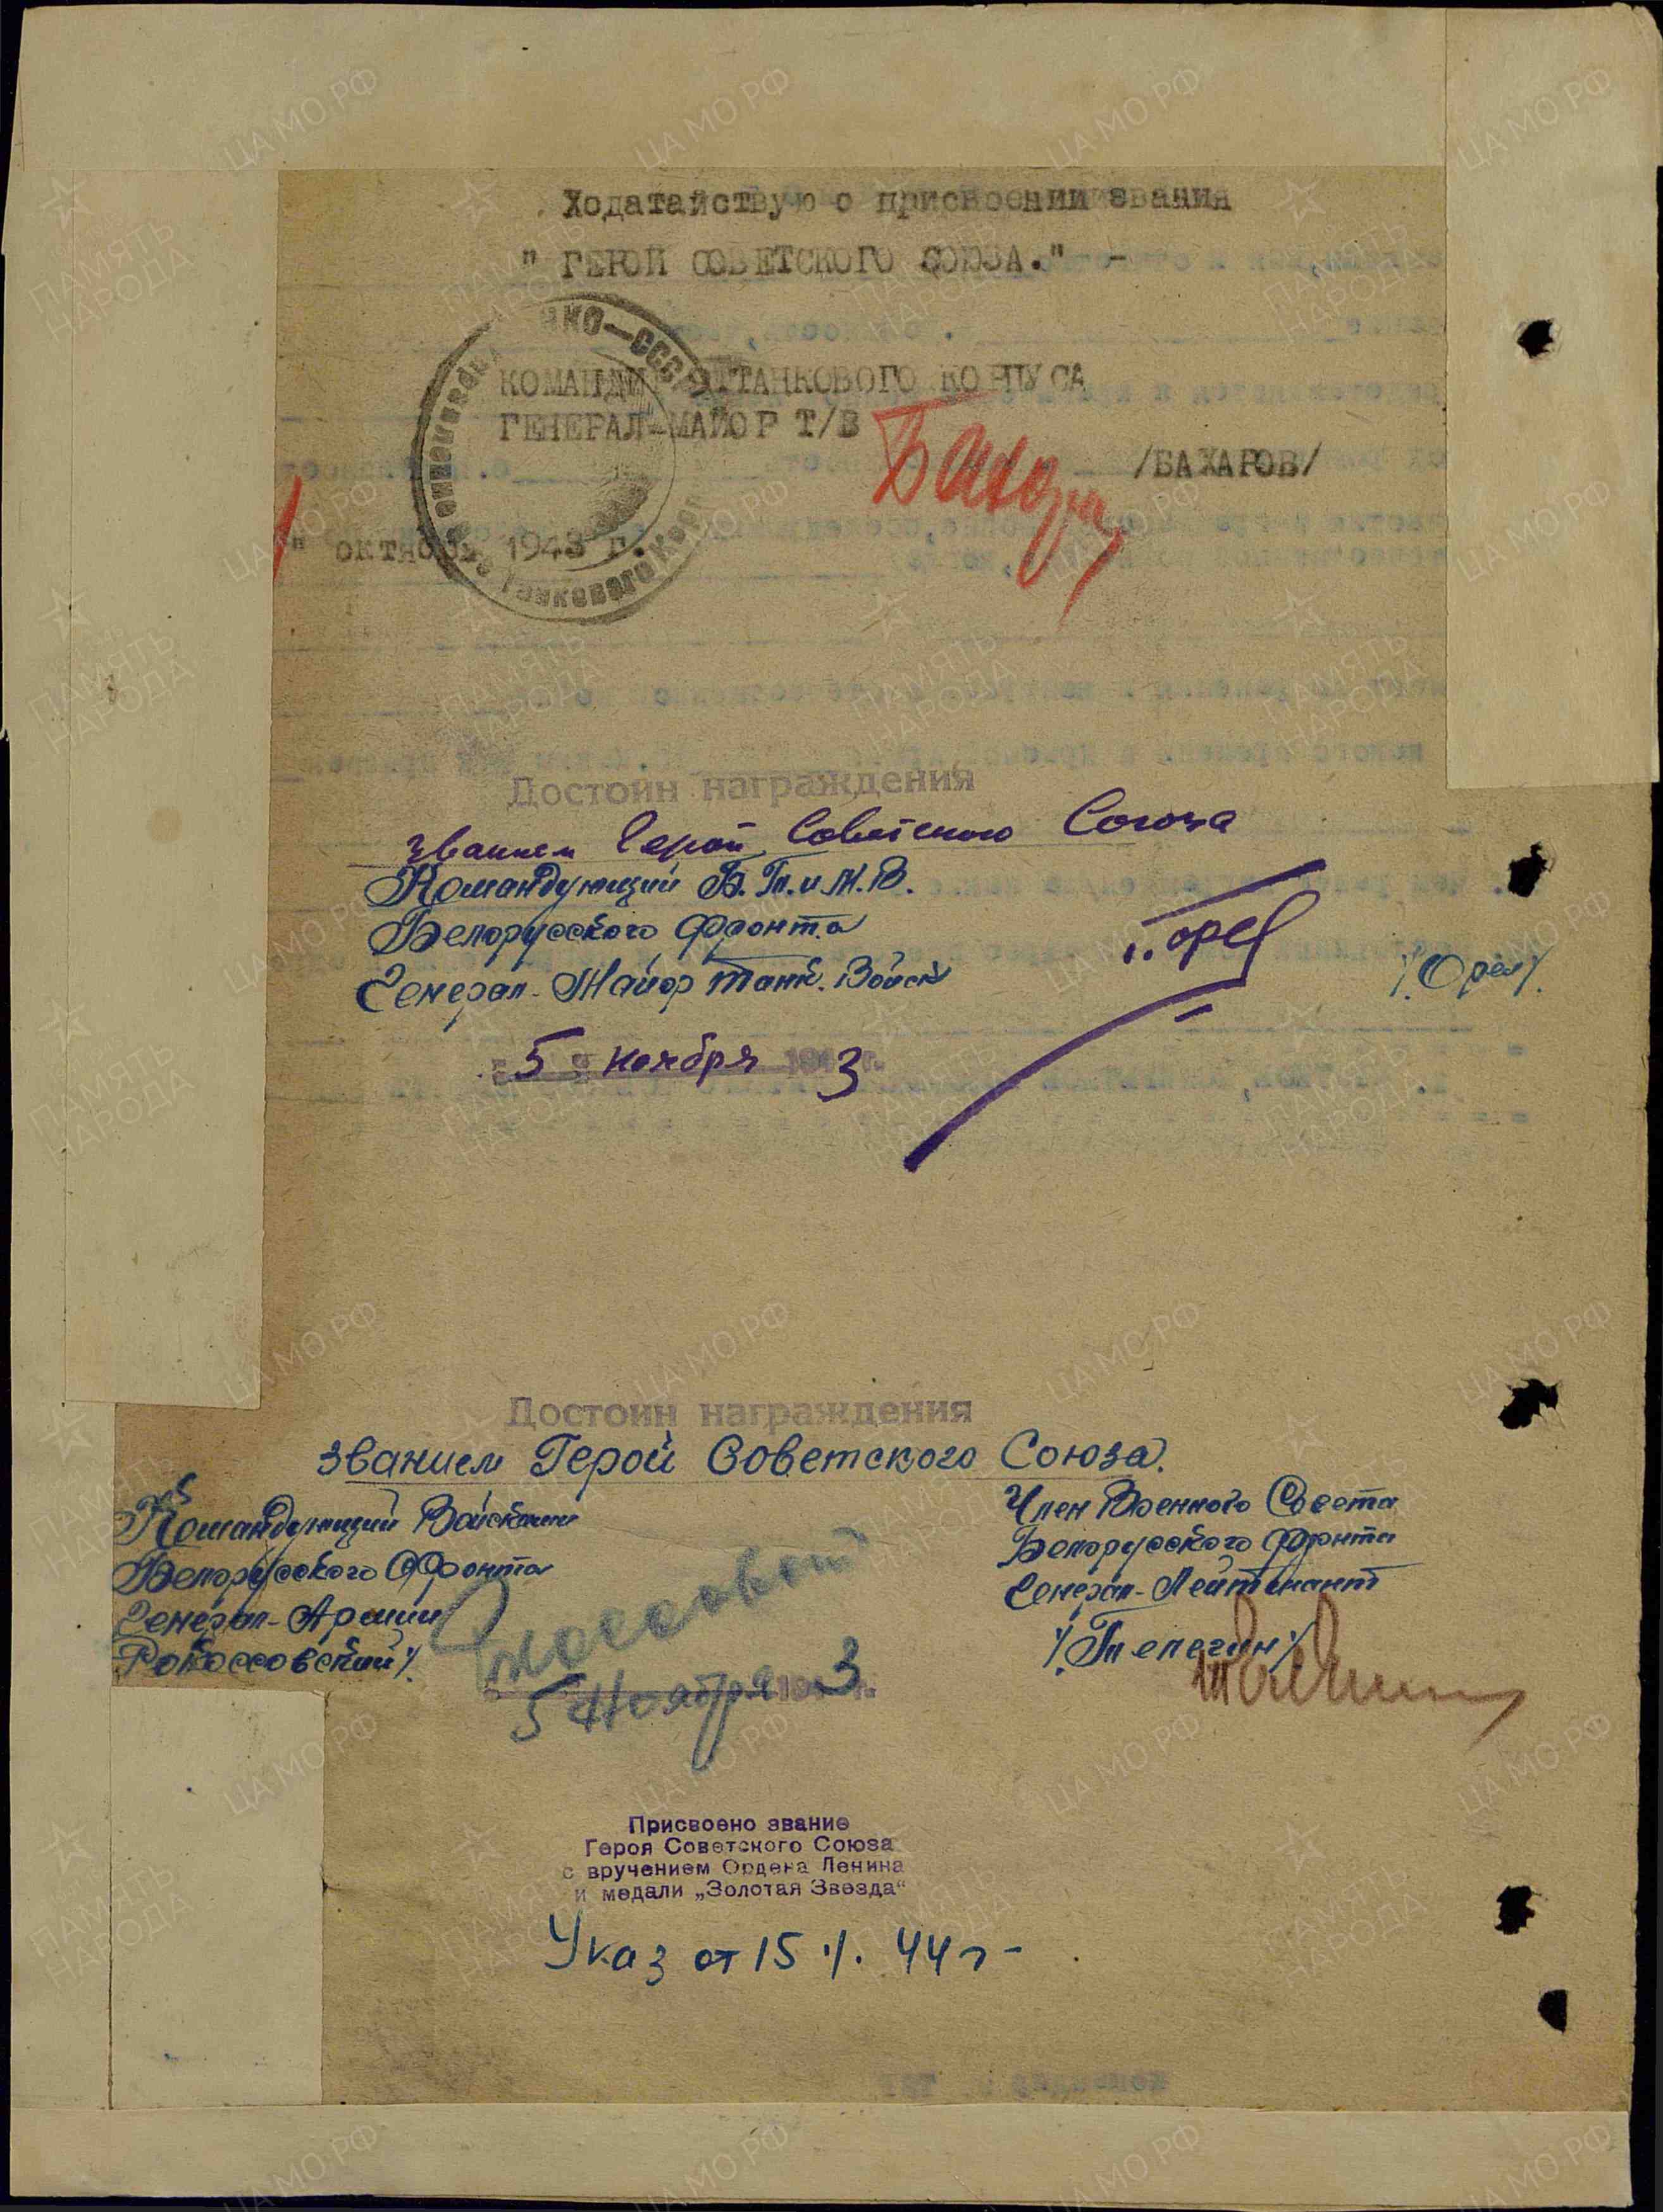 Ходатайствую о присвоении звания
" ГЕРОЙ СОВЕТСКОГО СОЮЗА." -
НКО—СССР
КОМАНДИР ТАНКОВОГО КОРПУСА
ГЕНЕРАЛ-МАЙОР Т/В
/БАХАРОВ/
" октября 1943 г.
Танкового Корп
Достоин награждения
званием Герой Советского Союза
Командующий Б.Т. и М.В.
Белорусского Фронта
Генерал-Майор Танк. Войск
/Орел/.
5 ноября 1943 г.
Достоин награждения
званием Герой Советского Союза.
Командующий Войсками
Белорусского Фронта
Генерал-Армии
Рокоссовский/.
Член Военного Совета
Белорусского Фронта
Генерал-Лейтенант
/Телегин/
5 Ноября 1943 г.
Присвоено звание
Героя Советского Союза
с вручением Ордена Ленина
и медали „Золотая Звезда“
Указ от 15.1.44 г-
ЦА МО РФ
ПАМЯТЬ
НАРОДА